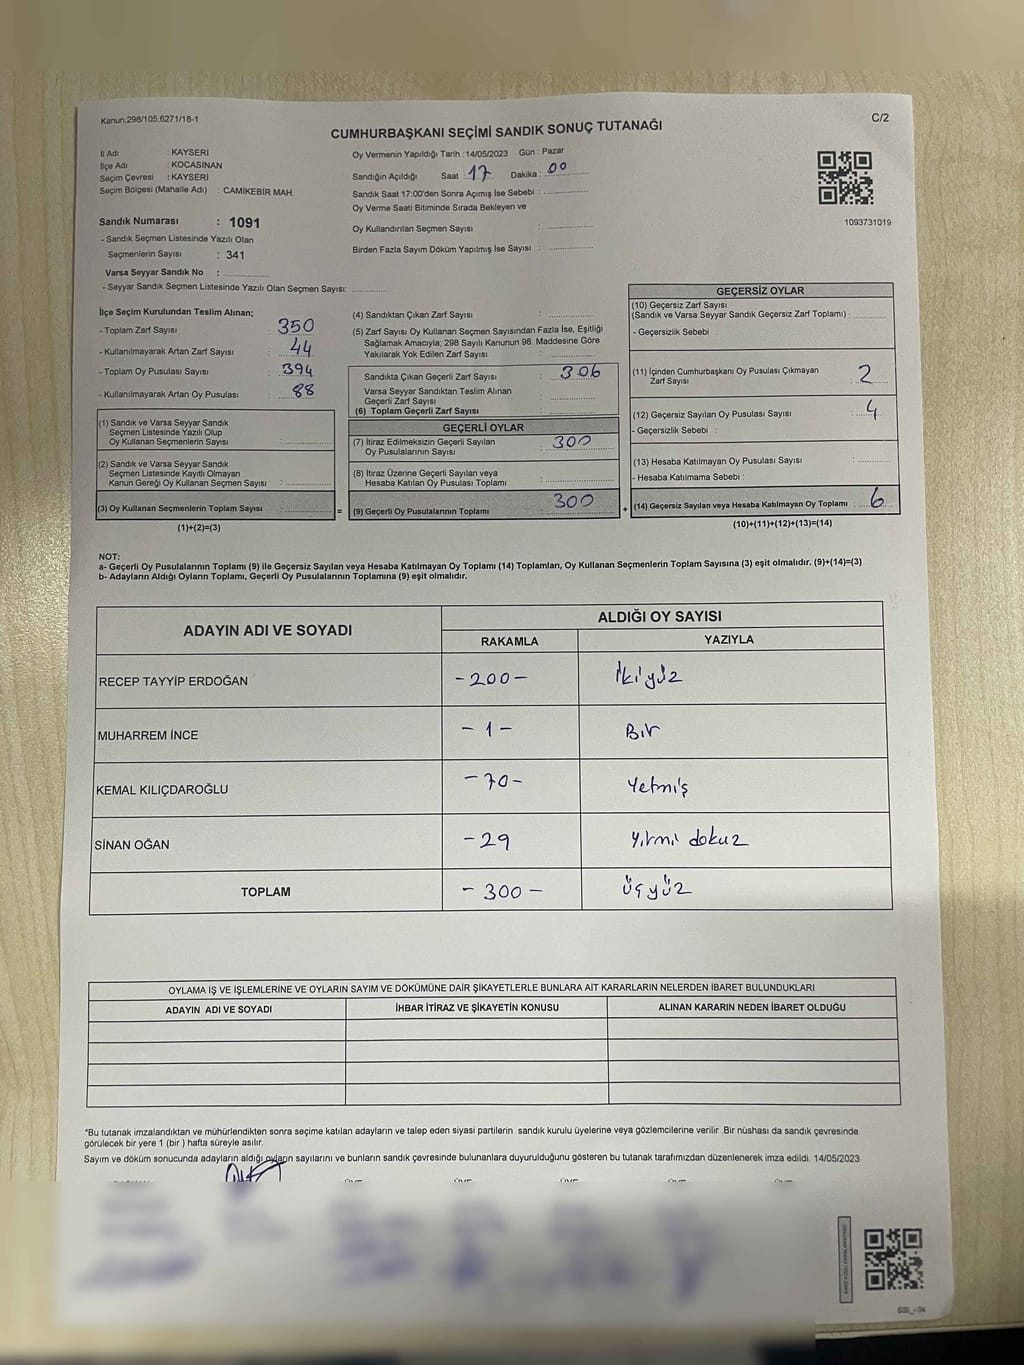 Kanun:298/105,6271/18-1
C/2
CUMHURBAŞKANI SEÇİMİ SANDIK SONUÇ TUTANAĞI
İl Adı : KAYSERİ
İlçe Adı : KOCASİNAN
Seçim Çevresi : KAYSERİ
Seçim Bölgesi (Mahalle Adı) : CAMİKEBİR MAH.
Sandık Numarası : 1091
- Sandık Seçmen Listesinde Yazılı Olan
Seçmenlerin Sayısı : 341
Varsa Seyyar Sandık No :
- Seyyar Sandık Seçmen Listesinde Yazılı Olan Seçmen Sayısı:
Oy Vermenin Yapıldığı Tarih :14/05/2023 Gün : Pazar
Sandığın Açıldığı Saat : 17 Dakika : 00
Sandık Saat 17:00'den Sonra Açımış İse Sebebi :
Oy Verme Saati Bitiminde Sırada Bekleyen ve
Oy Kullandırılan Seçmen Sayısı :
Birden Fazla Sayım Döküm Yapılmış İse Sayısı :
1093731019
İlçe Seçim Kurulundan Teslim Alınan;
- Toplam Zarf Sayısı : 350
- Kullanılmayarak Artan Zarf Sayısı : 44
- Toplam Oy Pusulası Sayısı : 394
- Kullanılmayarak Artan Oy Pusulası : 88
(1) Sandık ve Varsa Seyyar Sandık
Seçmen Listesinde Yazılı Olup
Oy Kullanan Seçmenlerin Sayısı :
(2) Sandık ve Varsa Seyyar Sandık
Seçmen Listesinde Kayıtlı Olmayan
Kanun Gereği Oy Kullanan Seçmen Sayısı :
(3) Oy Kullanan Seçmenlerin Toplam Sayısı :
(1)+(2)=(3)
=
(4) Sandıktan Çıkan Zarf Sayısı :
(5) Zarf Sayısı Oy Kullanan Seçmen Sayısından Fazla İse, Eşitliği
Sağlamak Amacıyla; 298 Sayılı Kanunun 98. Maddesine Göre
Yakılarak Yok Edilen Zarf Sayısı :
Sandıkta Çıkan Geçerli Zarf Sayısı : 306
Varsa Seyyar Sandıktan Teslim Alınan
Geçerli Zarf Sayısı :
(6) Toplam Geçerli Zarf Sayısı :
GEÇERLİ OYLAR
(7) İtiraz Edilmeksizin Geçerli Sayılan
Oy Pusulalarının Sayısı : 300
(8) İtiraz Üzerine Geçerli Sayılan veya
Hesaba Katılan Oy Pusulası Toplamı :
(9) Geçerli Oy Pusulalarının Toplamı : 300
+
GEÇERSİZ OYLAR
(10) Geçersiz Zarf Sayısı
(Sandık ve Varsa Seyyar Sandık Geçersiz Zarf Toplamı) :
- Geçersizlik Sebebi :
(11) İçinden Cumhurbaşkanı Oy Pusulası Çıkmayan
Zarf Sayısı : 2
(12) Geçersiz Sayılan Oy Pusulası Sayısı : 4
- Geçersizlik Sebebi :
(13) Hesaba Katılmayan Oy Pusulası Sayısı :
- Hesaba Katılmama Sebebi :
(14) Geçersiz Sayılan veya Hesaba Katılmayan Oy Toplamı : 6
(10)+(11)+(12)+(13)=(14)
NOT:
a- Geçerli Oy Pusulalarının Toplamı (9) ile Geçersiz Sayılan veya Hesaba Katılmayan Oy Toplamı (14) Toplamları, Oy Kullanan Seçmenlerin Toplam Sayısına (3) eşit olmalıdır. (9)+(14)=(3)
b- Adayların Aldığı Oyların Toplamı, Geçerli Oy Pusulalarının Toplamına (9) eşit olmalıdır.
ADAYIN ADI VE SOYADI ALDIĞI OY SAYISI
RAKAMLA YAZIYLA
RECEP TAYYİP ERDOĞAN -200- İkiyüz
MUHARREM İNCE -1- Bir
KEMAL KILIÇDAROĞLU -70- Yetmiş
SİNAN OĞAN -29 Yirmi dokuz
TOPLAM -300- Üçyüz
OYLAMA İŞ VE İŞLEMLERİNE VE OYLARIN SAYIM VE DÖKÜMÜNE DAİR ŞİKAYETLERLE BUNLARA AİT KARARLARIN NELERDEN İBARET BULUNDUKLARI
ADAYIN ADI VE SOYADI İHBAR İTİRAZ VE ŞİKAYETİN KONUSU ALINAN KARARIN NEDEN İBARET OLDUĞU
*Bu tutanak imzalandıktan ve mühürlendikten sonra seçime katılan adayların ve talep eden siyasi partilerin sandık kurulu üyelerine veya gözlemcilerine verilir .Bir nüshası da sandık çevresinde
görülecek bir yere 1 (bir ) hafta süreyle asılır.
Sayım ve döküm sonucunda adayların aldığı oyların sayılarını ve bunların sandık çevresinde bulunanlara duyurulduğunu gösteren bu tutanak tarafımızdan düzenlenerek imza edildi. 14/05/2023